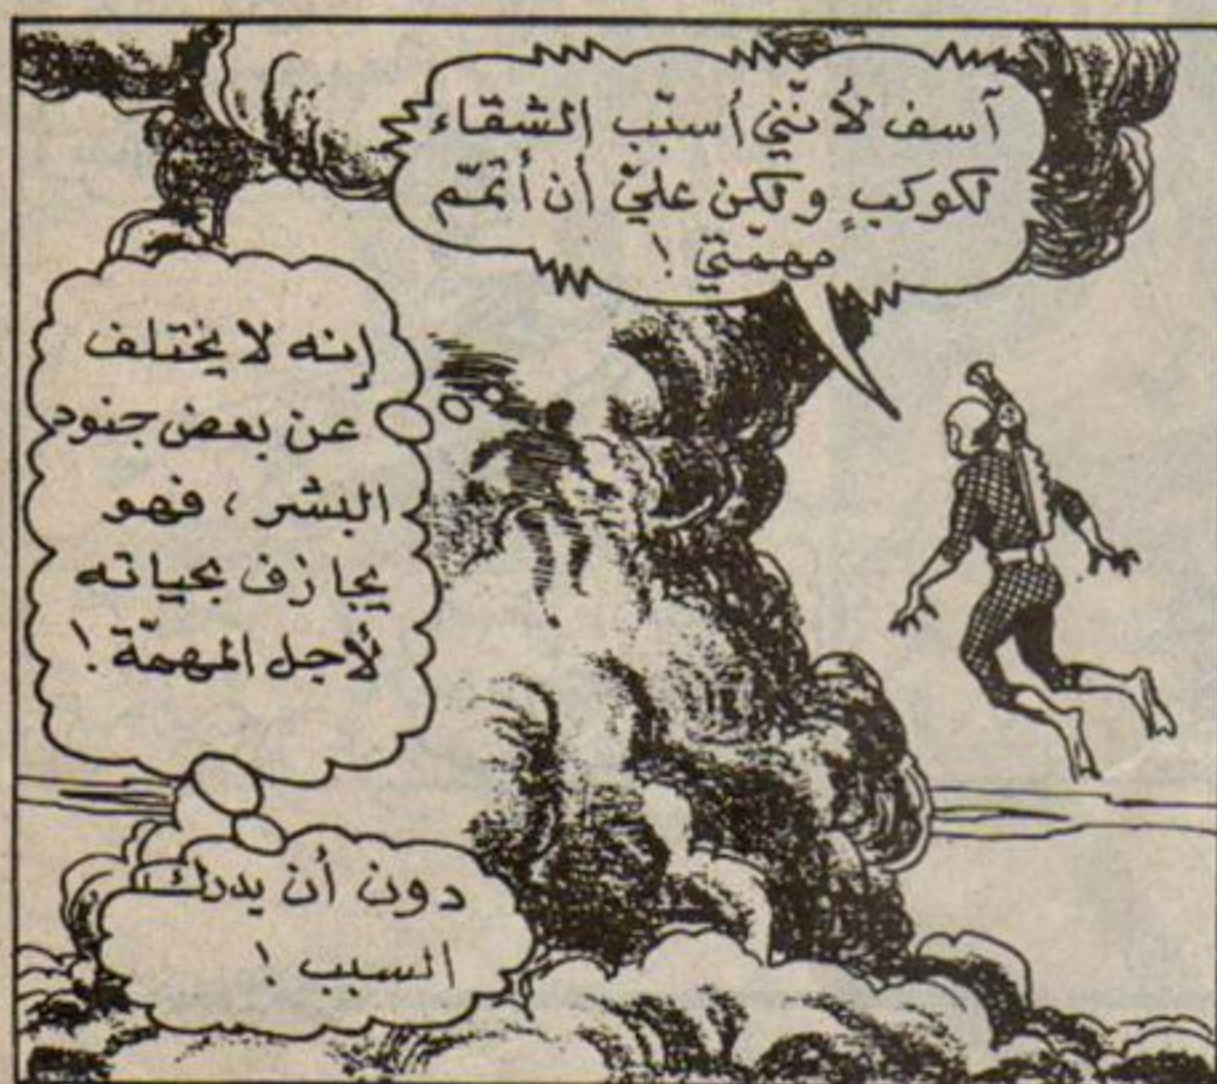 آسف لأنّني أسبّب الشقاء
لكوكبٍ ولكن عليّ أن أتمّم
مهمّتي !
إنه لا يختلف
عن بعض جنود
البشر ، فهو
يجازف بحياته
لأجل المهمّة !
دون أن يدرك
السبب !